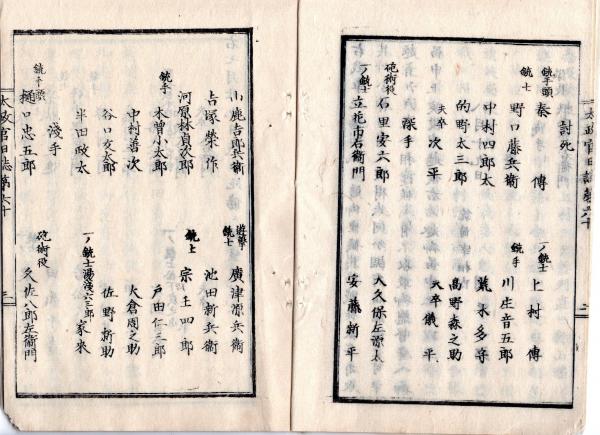 太政官日誌第六十
二
討死
銃手頭
秦 傳
一ノ銃士
上村 傳
銃士
野口藤兵衛
銃手
川庄音五郎
中村四郎太
荒木多守
的野太三郎
高野森之助
夫卒
次平
夫卒
儀平
深手
砲術役
石里安六郎
大久保左源太
一ノ銃士
立花市右衛門
安藤新平
山鹿吉郎兵衛
遊撃銃士
廣津源兵衛
吉塚榮作
池田新兵衛
河原林貞次郎
銃士
宗王四郎
銃手
木曽小太郎
戸田仁三郎
中村善次
大倉周之助
谷口文太郎
佐野新助
半田政太
一ノ銃士湯浅六三郎
家来
淺手
銃手頭
樋口忠五郎
砲術役
久佐八郎左衛門
太政官日誌第六十
三